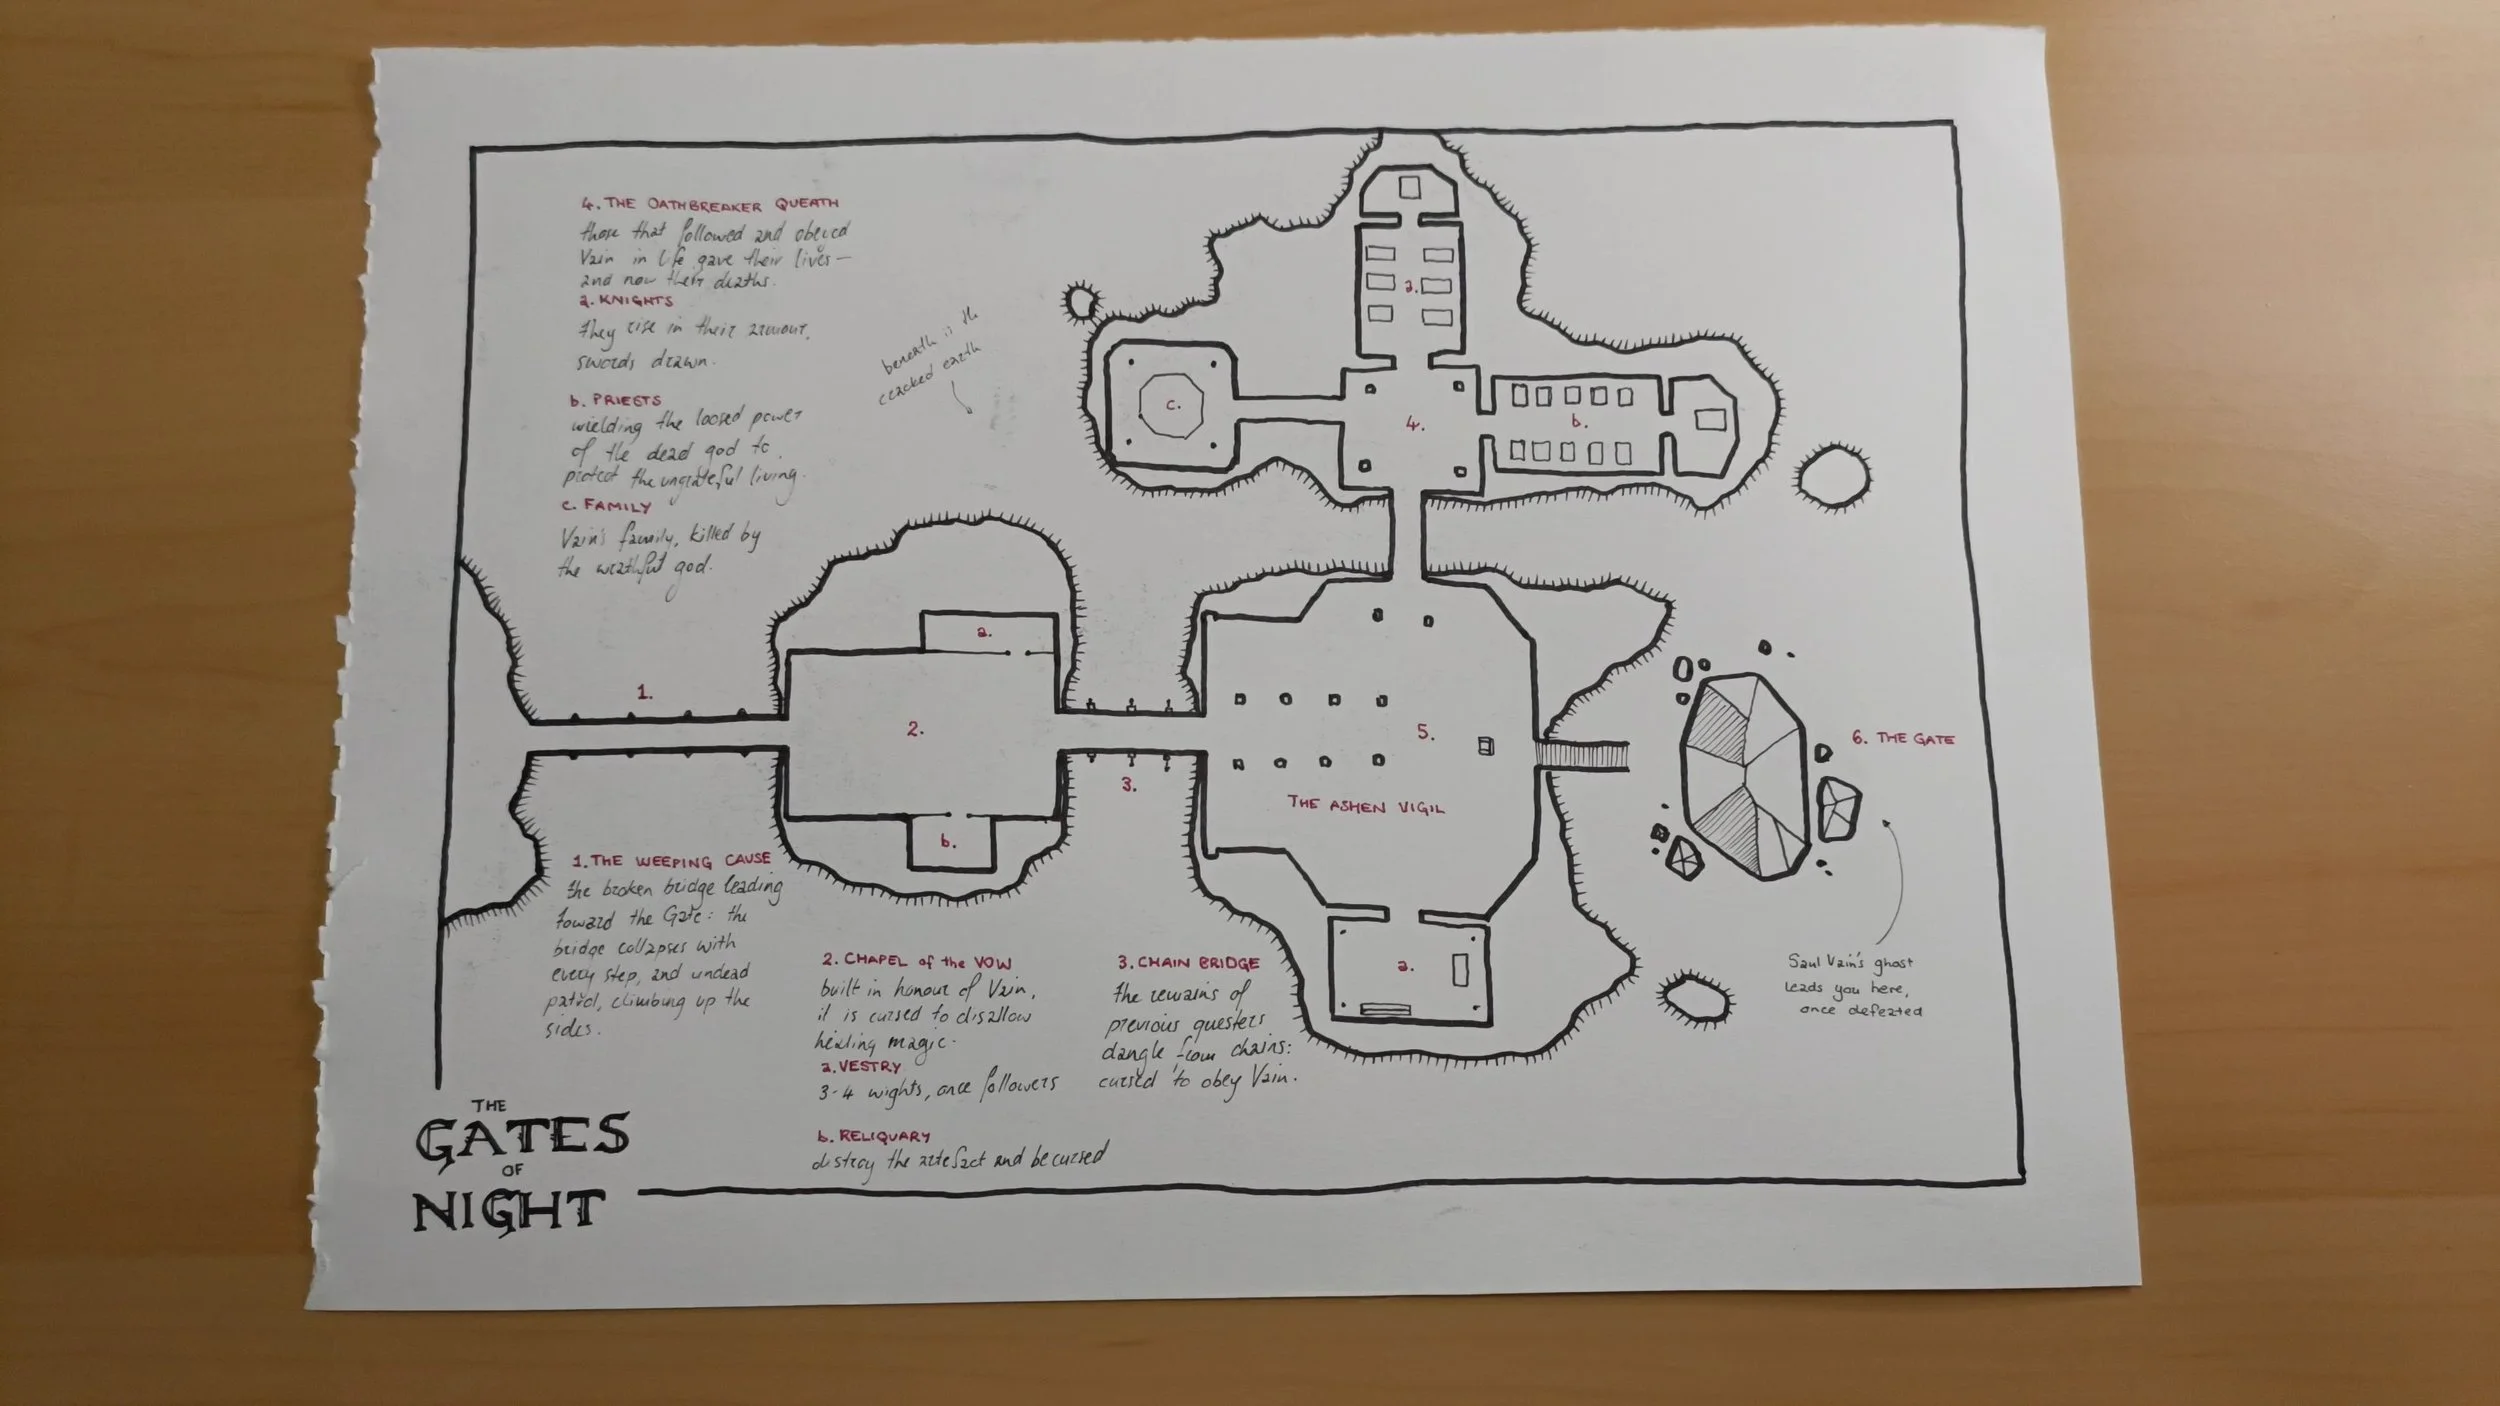 4. THE OATHBREAKER QUEATH
those that followed and obeyed
Vain in life gave their lives —
and now their deaths.
a. KNIGHTS
They rise in their armour,
swords drawn.
b. PRIESTS
wielding the loosed power
of the dead god to
protect the ungrateful living.
c. FAMILY
Vain's family, killed by
the wrathful god.
beneath is the
cracked earth
a.
c.
4.
b.
a.
1.
2.
b.
3.
5.
THE ASHEN VIGIL
a.
6. THE GATE
Saul Vain's ghost
leads you here,
once defeated
1. THE WEEPING CAUSE
the broken bridge leading
toward the Gate: the
bridge collapses with
every step, and undead
patrol, climbing up the
sides.
2. CHAPEL of the VOW
built in honour of Vain,
it is cursed to disallow
healing magic.
a. VESTRY
3-4 wights, once followers
b. RELIQUARY
destroy the artefact and be cursed
3. CHAIN BRIDGE
the remains of
previous questers
dangle from chains:
cursed to obey Vain.
THE
GATES
OF
NIGHT